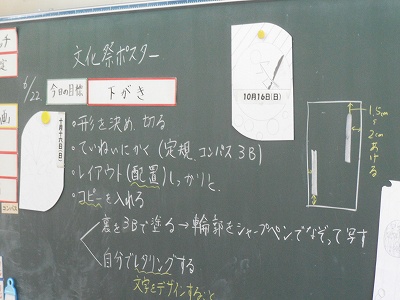 文化祭ポスター
6/22
今日の目標
下がき
10月16日(日)
十月十六日(日)
・形を決め、切る
・ていねいにかく(定規、コンパス 3B)
・レイアウト(配置)しっかりと、
・コピーを入れる
裏を3Bで塗る→輪郭をシャープペンでなぞって写す
自分でレタリングする
文字をデザインすること
1.5cm
〜
2cm
あける
コンパス